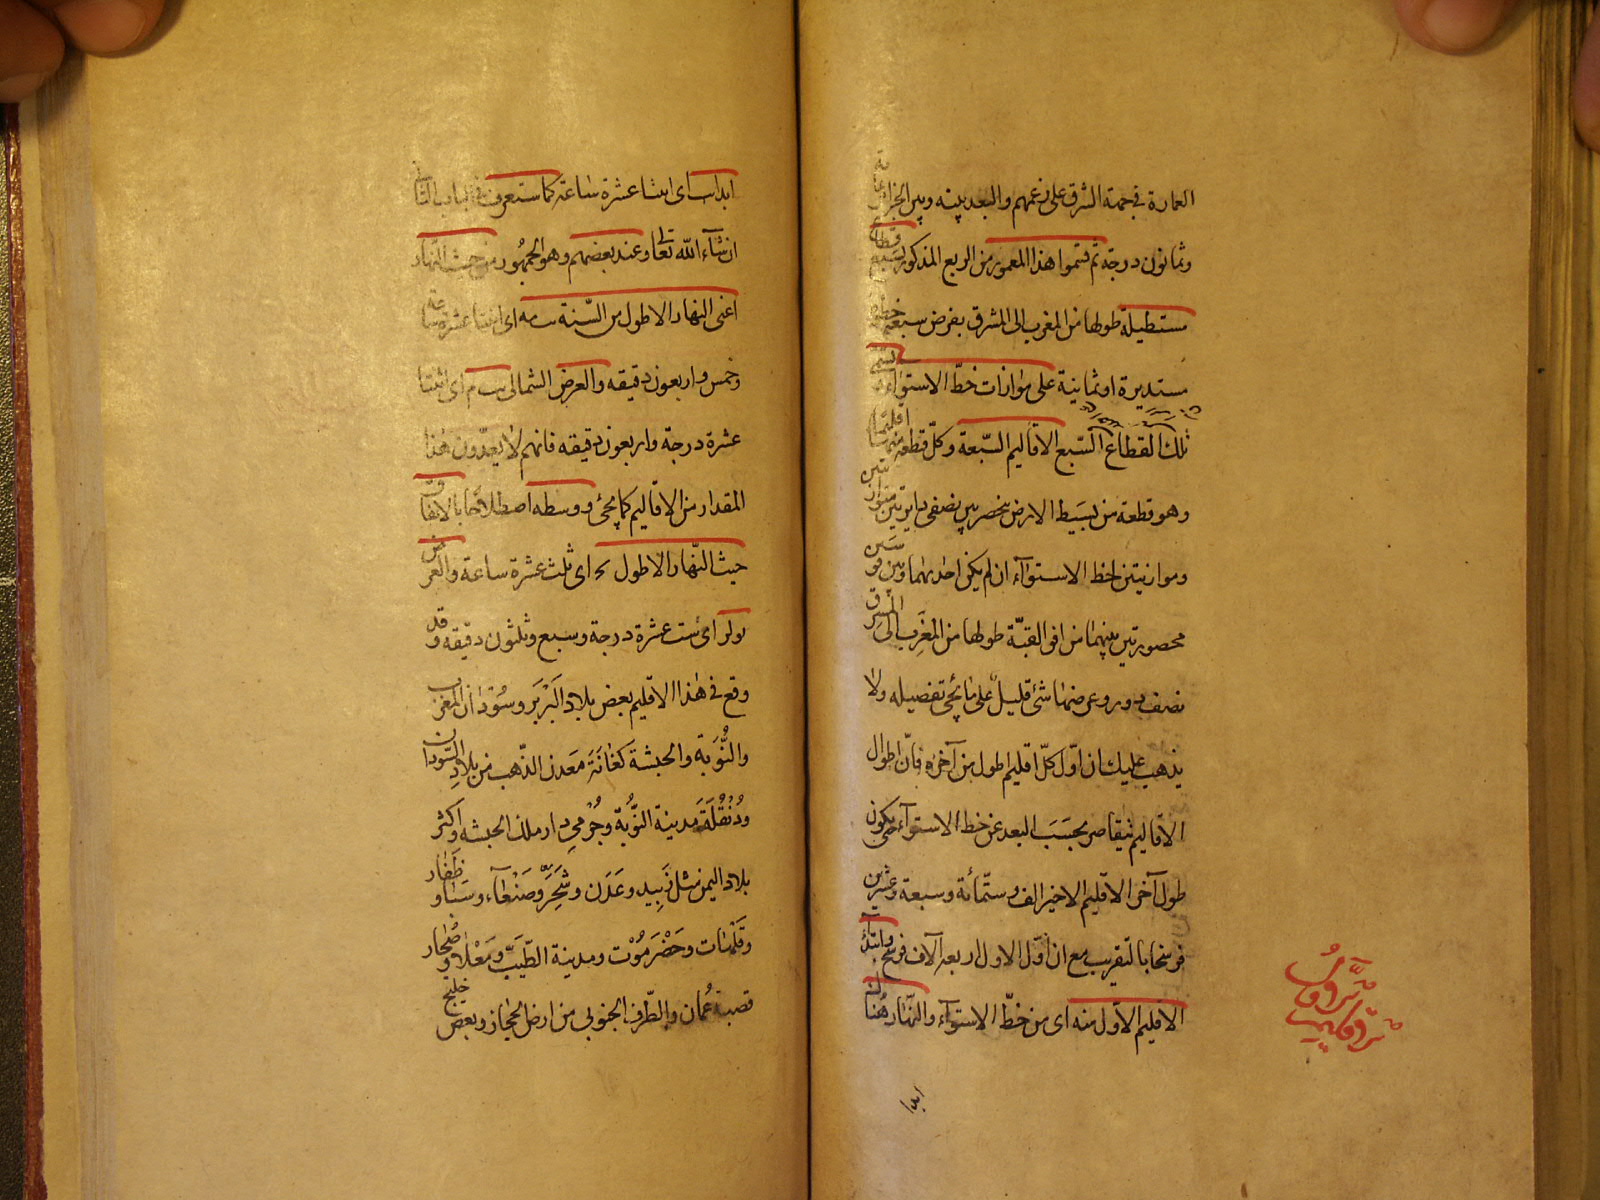 العمارة فى جهة الشرق على زعمهم والبعد بينه وبين الجزائر
وثمانون درجة ثم قسموا هذا المعمور من الربع المذكور بسبع قطاع
مستطيلة طولها من المغرب الى المشرق بفرض سبعة خطوط
مستديرة او ثمانية على موازات خط الاستواء يسمى
تلك القطاع السبع الاقاليم السبعة وكل قطعة منها اقليما
وهو قطعة من بسيط الارض ينحصر بين نصفى دايرتين متوازيتين
وموازيتين لخط الاستواء ان لم يكن احديهما وبين قوسين
محصورتين بينهما من افق القبة طولها من المغرب الى المشرق
نصف دور وعرضها شئ قليل على ما يجئ تفصيله ولا
يذهب عليك ان اول كل اقليم اطول من آخره فان اطوال
الاقاليم يتقاصر بحسب البعد عن خط الاستواء حتى يكون
طول آخر الاقليم الاخير الف وستمائة وسبعة وعشرين
فرسخا بالتقريب مع ان اول الاول اربعة آلاف فرسخ وابتداء
الاقليم الاول منه اى من خط الاستواء والنهار هناك
ابدا
ابدا يب اى اثنتا عشرة ساعة كما ستعرف فى الباب الثانى
ان شاء الله تعالى وعند بعضهم وهو الجمهور من حيث النهار
اعنى النهار الاطول من السنة يب مه اى اثنتا عشرة ساعة
وخمس واربعون دقيقه والعرض الشمالى يب م اى اثنتا
عشرة درجة واربعون دقيقه فانهم لا يعدون هذا
المقدار من الاقاليم كما يجئ ووسطه اصطلاحا بالاتفاق
حيث النهار الاطول يج اى ثلث عشرة ساعة والعرض
يو لز اى ست عشرة درجة وسبع وثلثون دقيقه وقد
وقع فى هذا الاقليم بعض بلاد البربر وسودان المغرب
والنوبة والحبشة كغانة معدن الذهب من بلاد السودان
ودنقلة مدينة النوبة وجرمى دار ملك الحبشه واكثر
بلاد اليمن مثل زبيد وعدن وشحر وصنعآء وسبا وظفار
وقلهات وحضرموت ومدينة الطيب ومعلا وصحار
قصبة عمان والطرف الجنوبى من ارض الحجاز وبعض خليج